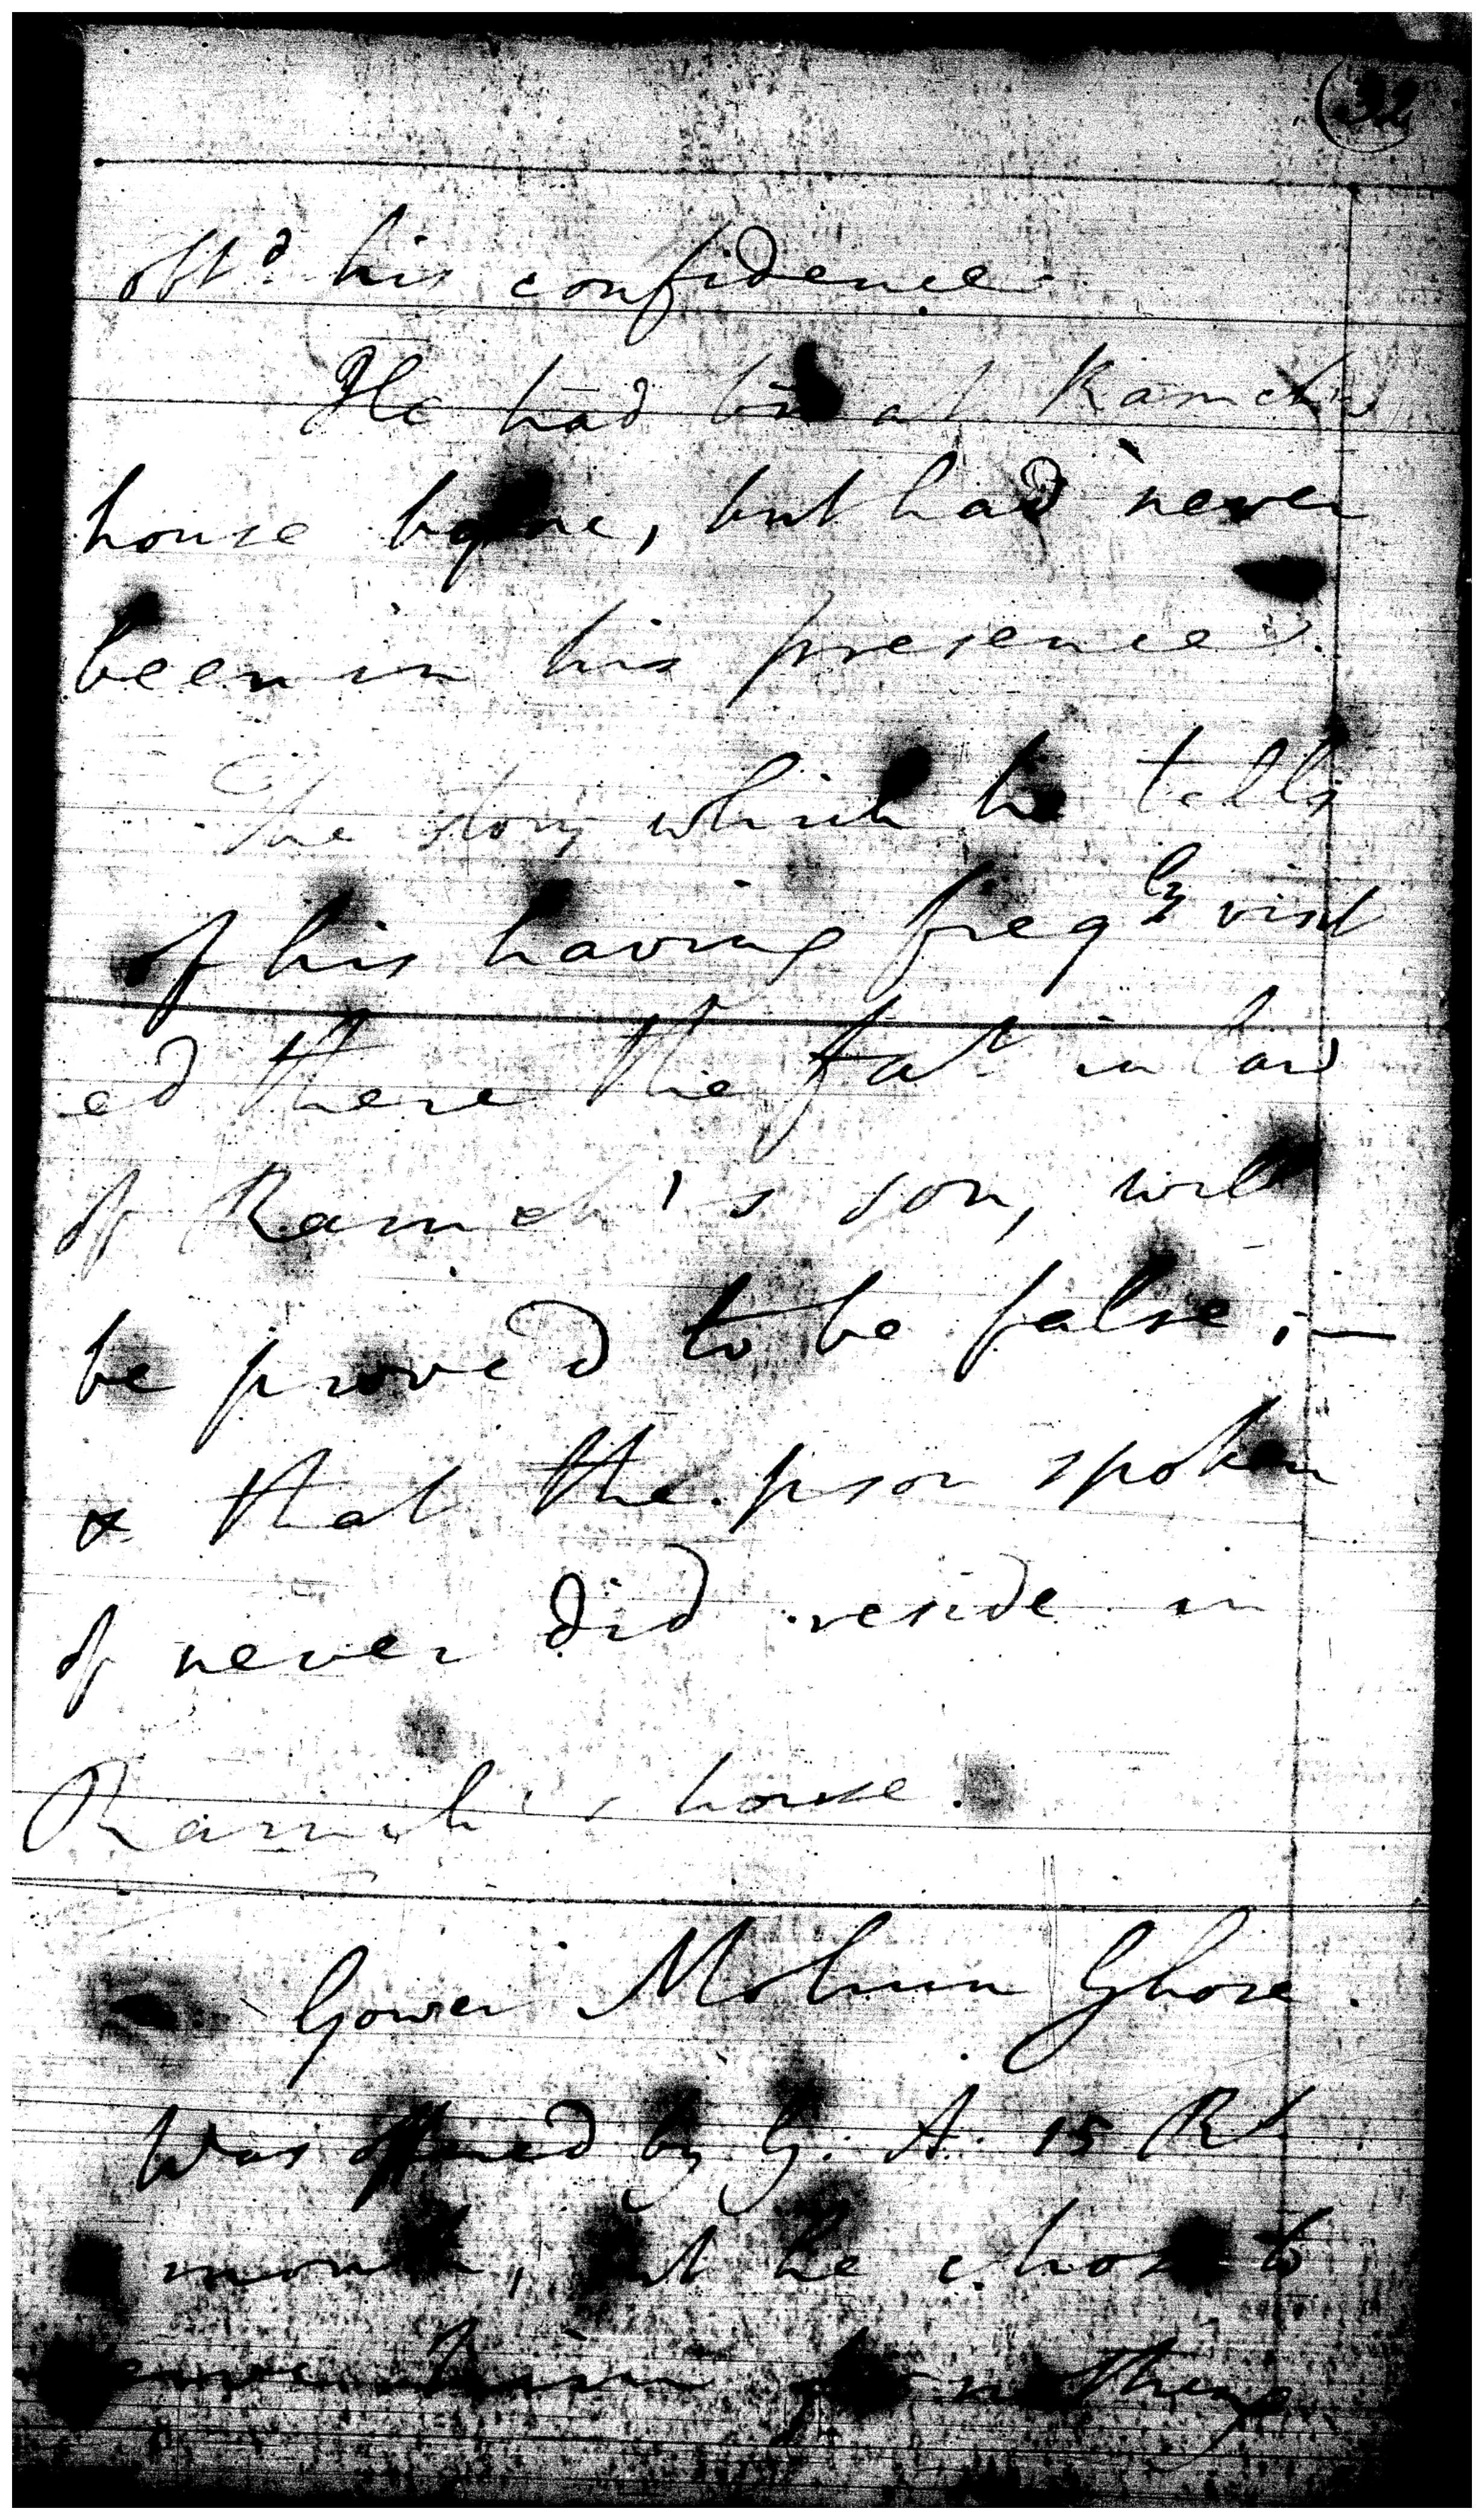 (32)
his confidence.
He had bn at Ramch's
house before, but had never
been in his presence.
The story which he tells
of his having freqly visit
ed there the fatr in law
of Ramch's son, will
be proved to be false; —
& that the pson spoken
of never did reside in
Ramch's house.
Gower Mohun Ghose.
Was offered by G. A. 15 Rs
month, but he chose to
serve him for nothing